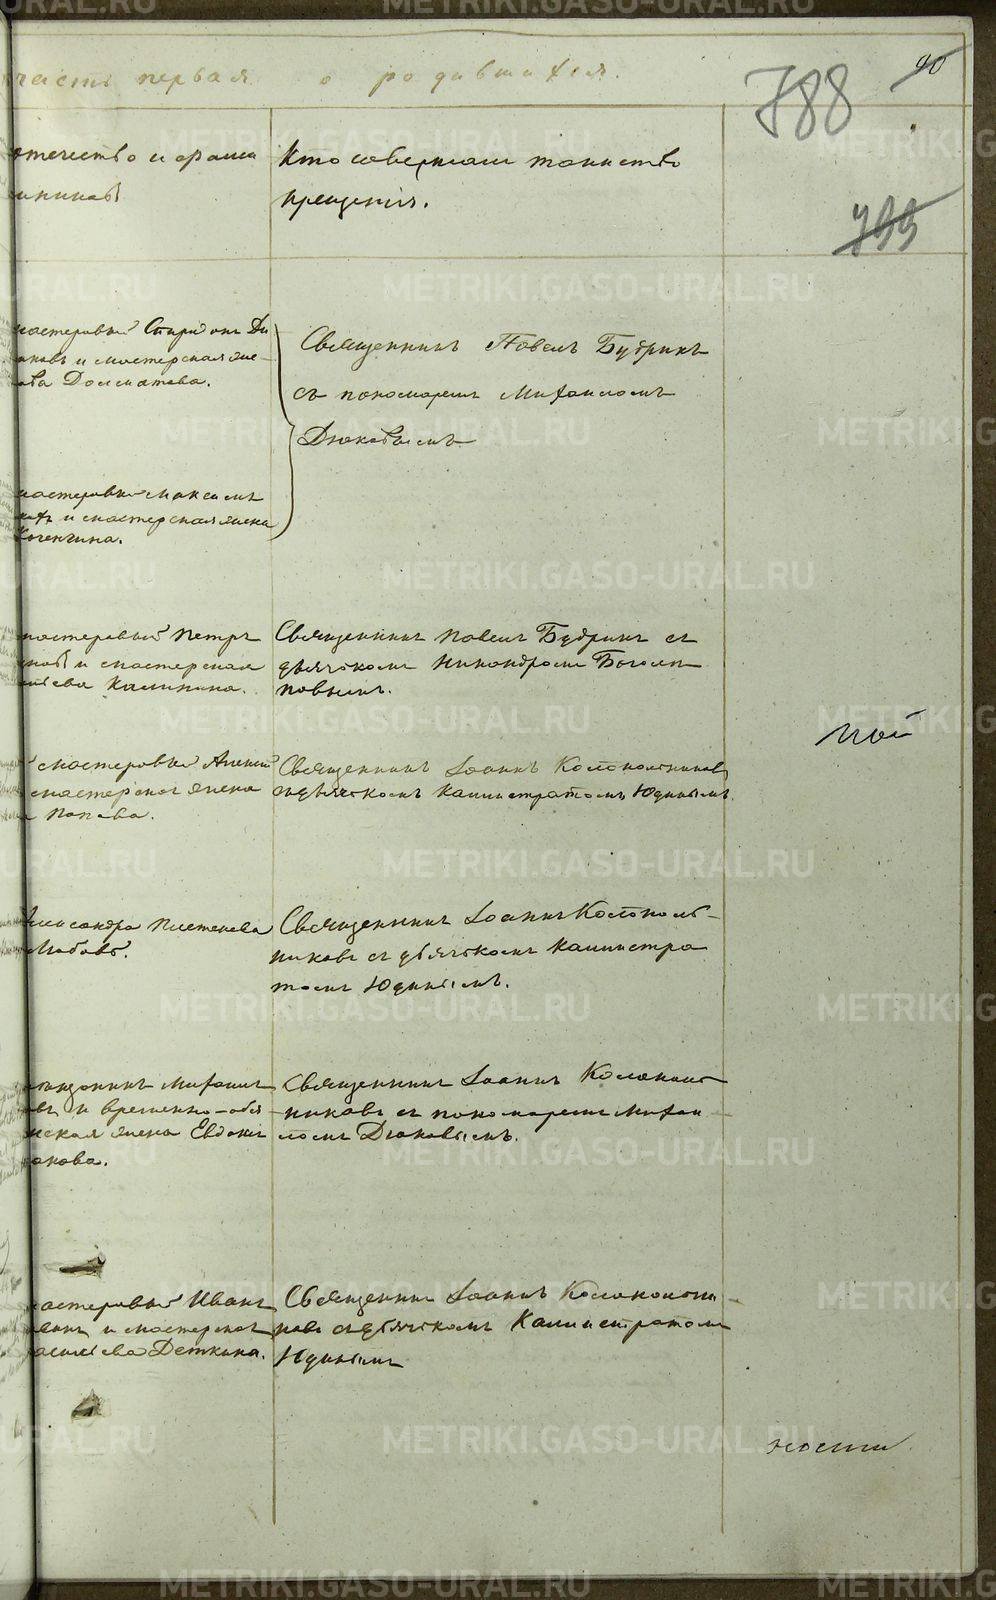 часть первая о родившихся.
90
788
799
отчество и фами
Кто совершал таинство
крещенія.
мастеровый Спиридонъ Ди
и мастерская же
Долматова.
Священникъ Павелъ Будринъ
съ пономаремъ Михаиломъ
Дюковымъ
мастеровый Максимъ
и мастерская жена
Коченгина.
мастеровый Петръ
и мастерская
Калинина.
Священникъ Павелъ Будринъ съ
дьячкомъ Никандромъ Боголе
повымъ.
мастеровый Алексей
мастерская жена
Попова.
Священникъ Іоаннъ Колокольниковъ
съ дьячкомъ Калистратомъ Юдинымъ
Александра Плетенева
Священникъ Іоаннъ Колоколь-
никовъ съ дьячкомъ Каллистра
томъ Юдинымъ.
Михаилъ
и временно-обя
жена Евдокія
Священникъ Іоаннъ Колоколь
никовъ съ пономаремъ Михаи-
ломъ Дюковымъ.
мастеровый Иванъ
и мастерская
Деткина.
Священникъ Іоаннъ Колокольни-
ковъ съ дьячкомъ Каллистратомъ
Юдинымъ
METRIKI.GASO-URAL.RU